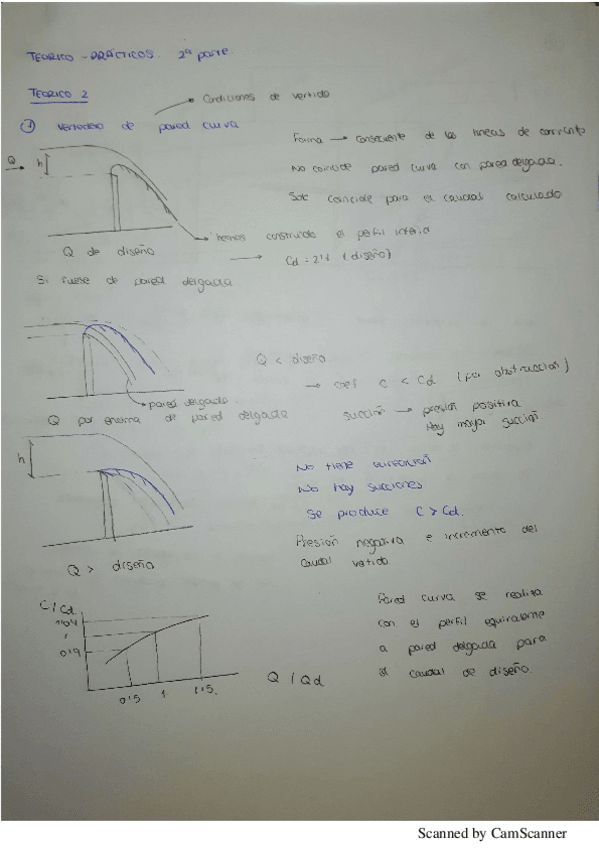 TEORICO - PRÁCTICOS. 2ª parte.
TEORICO 2
Condiciones de vertido
1 Vertedero de pared curva
Forma → consecuente de las lineas de corriente
Q
h
No coincide pared curva con pared delgada.
Solo coincide para el caudal calculado
hemos construido el perfil inferior
Q de diseño
Cd = 2'1 (diseño)
Si fuese de pared delgada
Q < diseño
→ coef C < Cd (por obstruccion)
pared delgada
Q por encima de pared delgada
succión → presión positiva
Hay mayor succión
h
No tiene
No hay succiones
Se produce C > Cd.
Presión negativa e incremento del
caudal vertido
Q > diseño
C/Cd
1'04
1
0'9
0'5 1 1'5
Q / Qd
Pared curva se realiza
con el perfil equivalente
a pared delgada para
el caudal de diseño.
Scanned by CamScanner